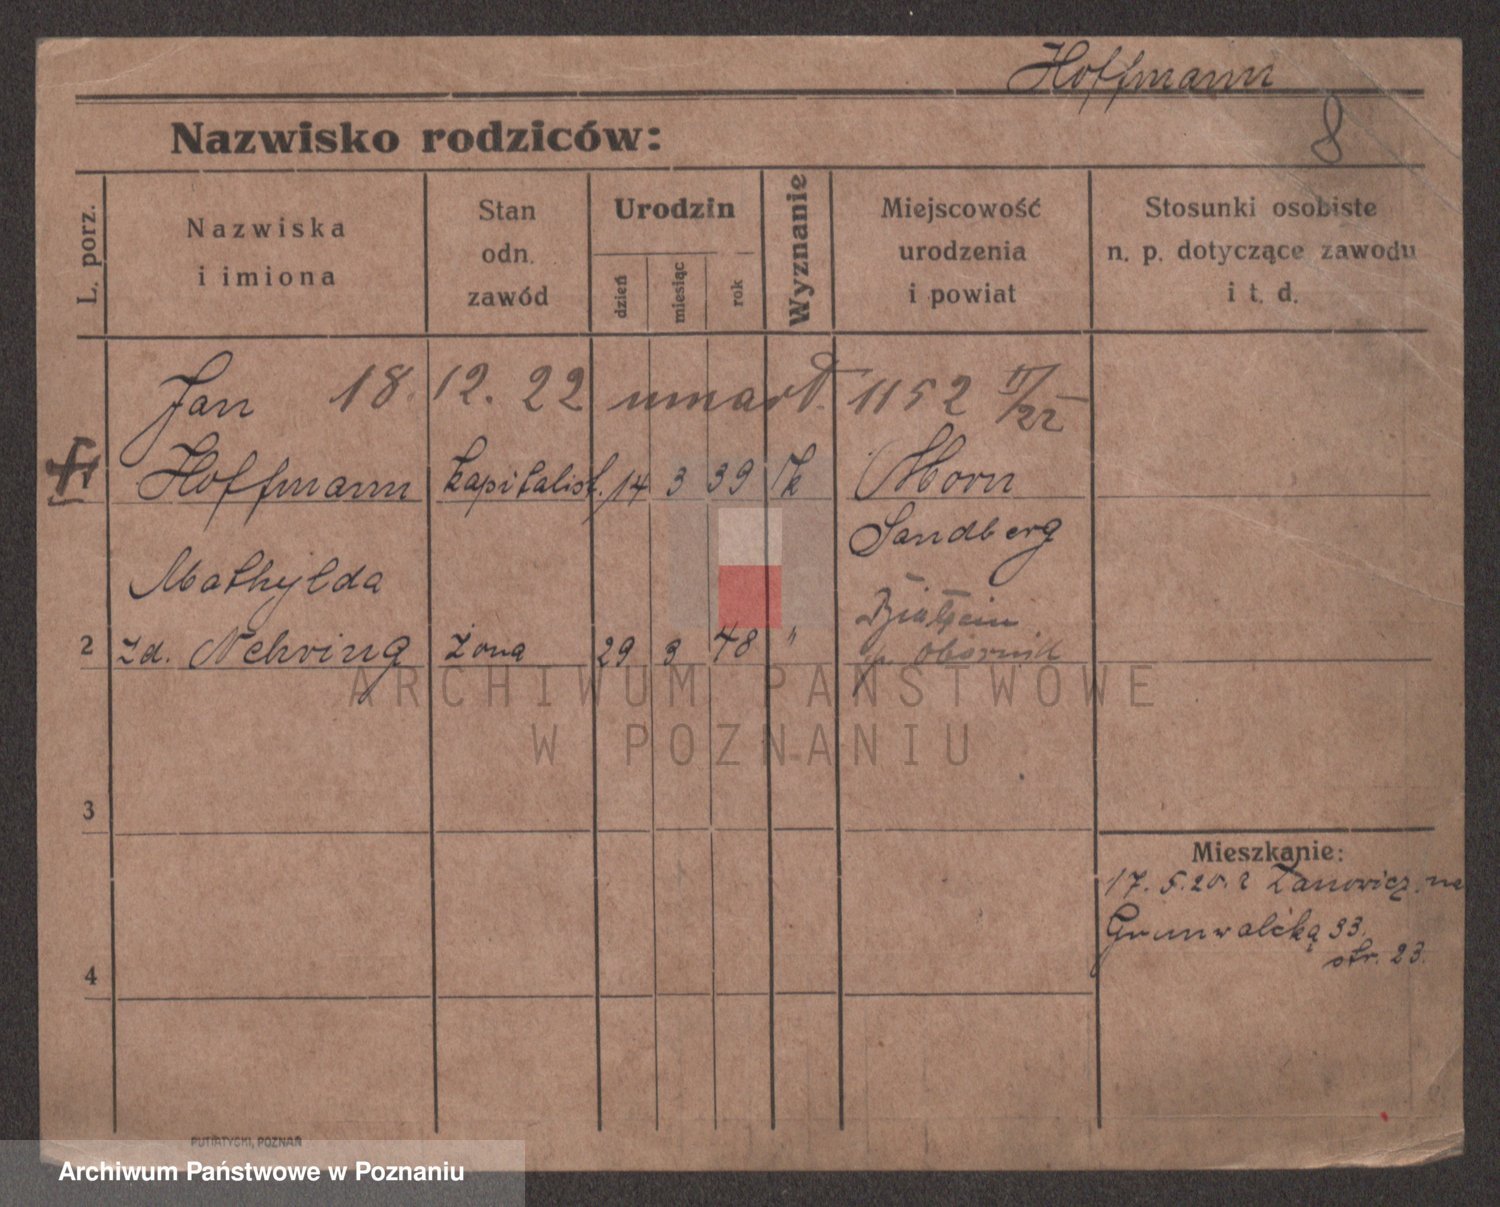 Hoffmann
8
Nazwisko rodziców:
L. porz.
Nazwiska
i imiona
Stan
odn.
zawód
Urodzin
dzień
miesiąc
rok
Wyznanie
Miejscowość
urodzenia
i powiat
Stosunki osobiste
n. p. dotyczące zawodu
i t. d.
Jan 18. 12. 22 umarł. 1152 /22
Hoffmann kapitalist. 14 3 39 Horn
Sandberg
Mathylda
2 zd. Nehring żona 29 3 48 "
p. Obornik
3
Mieszkanie:
17. 5. 20. z Żanowicz. na
Grunwalcką 33.
str. 23.
4
PUTIATYCKI, POZNAŃ
ARCHIWUM PAŃSTWOWE
W POZNANIU
Archiwum Państwowe w Poznaniu